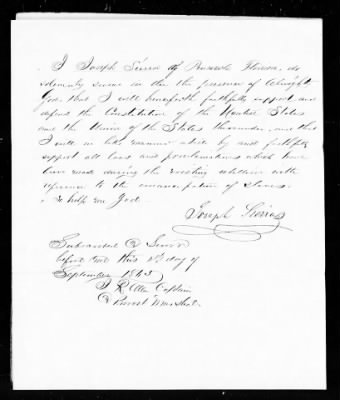 I Joseph Sierra of Pensacola Florida, do
solemnly swear in the presence of Almighty
God that I will henceforth faithfully support and
defend the Constitution of the United States
and the Union of the States thereunder, and that
I will in like manner abide by and faithfully
support all laws and proclamations which have
been made during the existing rebellion with
reference to the emancipation of slaves
So help me God.
Joseph Sierra
Subscribed & Sworn
before me this day of
September 1865
Captain
Provost Marshal